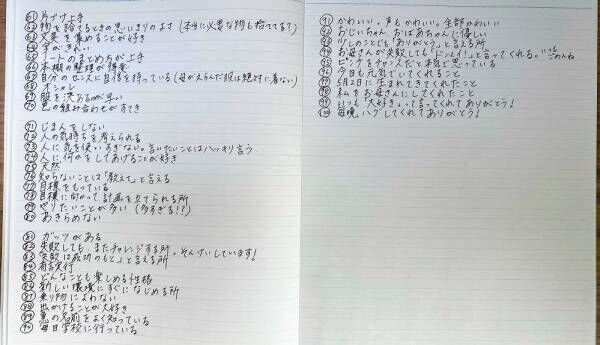 61 片づけ上手
62 物を捨てるときの思いきりのよさ(本当に必要な物も捨ててる?)
63 文具を集めることが好き
64 字がきれい
65 ノートのまとめ方が上手
66 本棚の整理が得意
67 自分のセンスに自信を持っている(母がえらんだ服は絶対に着ない)
68 オシャレ
69 服を決めるが早い
70 色の組み合わせがすてき
71 じまんをしない
72 人の気持ちを考えられる
73 人に気を使いすぎない。言いたいことはハッキリ言う
74 人に何かをしてあげることが好き
75 天然
76 知らないことは「教えて」と言える
77 目標をもっている
78 目標に向かって計画を立てられる所
79 やりたいことが多い(多すぎる!?)
80 あきらめない
81 ガッツがある
82 失敗しても、またチャレンジする所
83 「失敗は成功のもと」と言える所。そんけいしています!
84 有言実行
85 どんなことも楽しめる性格
86 新しい環境にすぐになじめる所
87 乗り物によわない
88 出かけることが大好き
89 魚の名前をよく知っている
90 毎日学校に行っている
91 かわいい。声もかわいい。全部かわいい
92 おじいちゃん、おばあちゃんに優しい
93 少しのことでも「ありがとう」と言える所
94 お母さんが失敗しても「ドンマイ!」と言ってくれる。いつもごめんね
95 ピンチをチャンスだと本気で思っている
96 今日も元気でいてくれること
97 5月2日に生まれてきてくれたこと
98 私をお母さんにしてくれたこと
99 いつも「大好き」って言ってくれてありがとう!
100 毎晩ハグしてくれてありがとう!